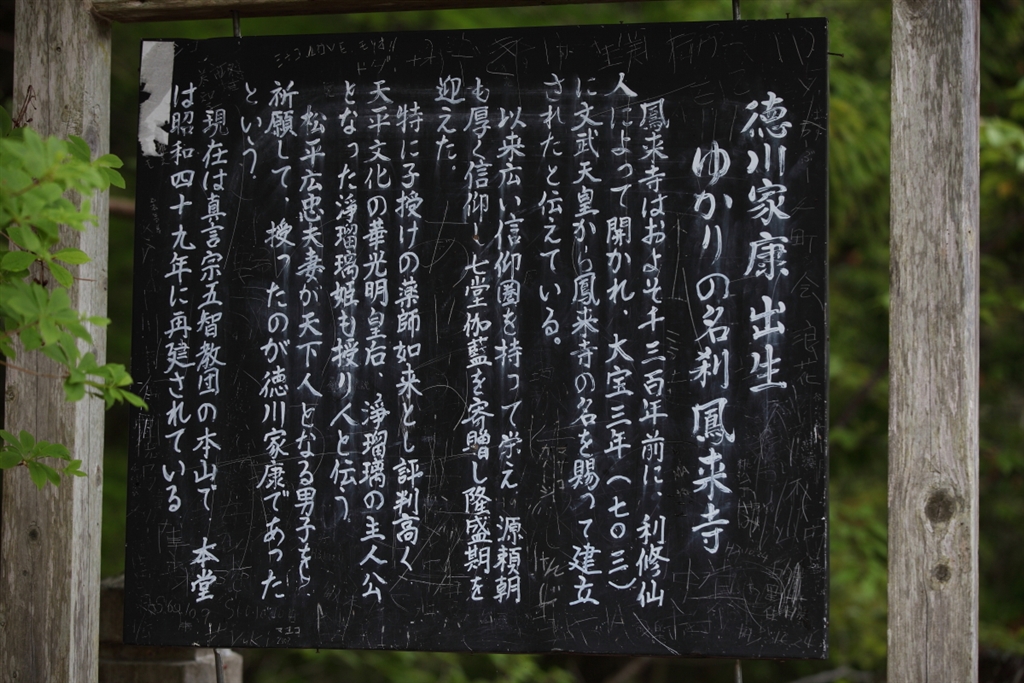 徳川家康 出生
ゆかりの名刹 鳳来寺
鳳来寺はおよそ千三百年前に、利修仙
人によって開かれ、大宝三年(七〇三)
に文武天皇から鳳来寺の名を賜って建立
されたと伝えている。
以来広い信仰圏を持って栄え 源頼朝
も厚く信仰し七堂伽藍を寄贈し隆盛期を
迎えた。
特に子授けの薬師如来とし評判高く
天平文化の華光明皇后、浄瑠璃の主人公
となった浄瑠璃姫も授り人と伝う
松平広忠夫妻が天下人となる男子をと
祈願して、授ったのが徳川家康であった
という。
現在は真言宗五智教団の本山で 本堂
は昭和四十九年に再建されている